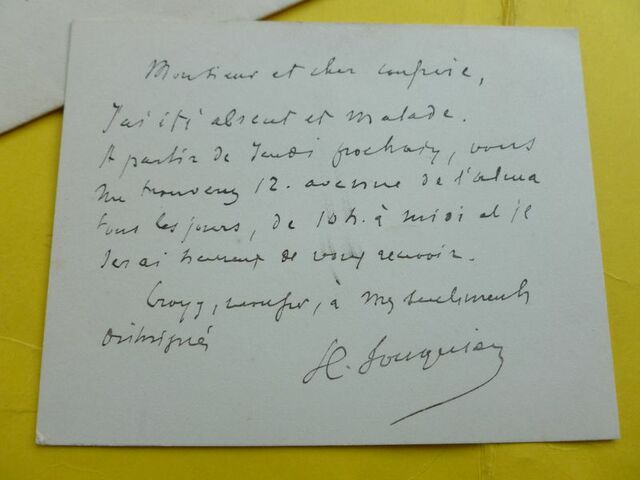 Monsieur et cher confrère,
J'ai été absent et malade.
A partir de Jeudi prochain, vous
me trouverez 12. avenue de l'alma
tous les jours, de 10 h. à midi et je
serai heureux de vous recevoir.
Croyez, confrère, à mes sentiments
distingués
H.